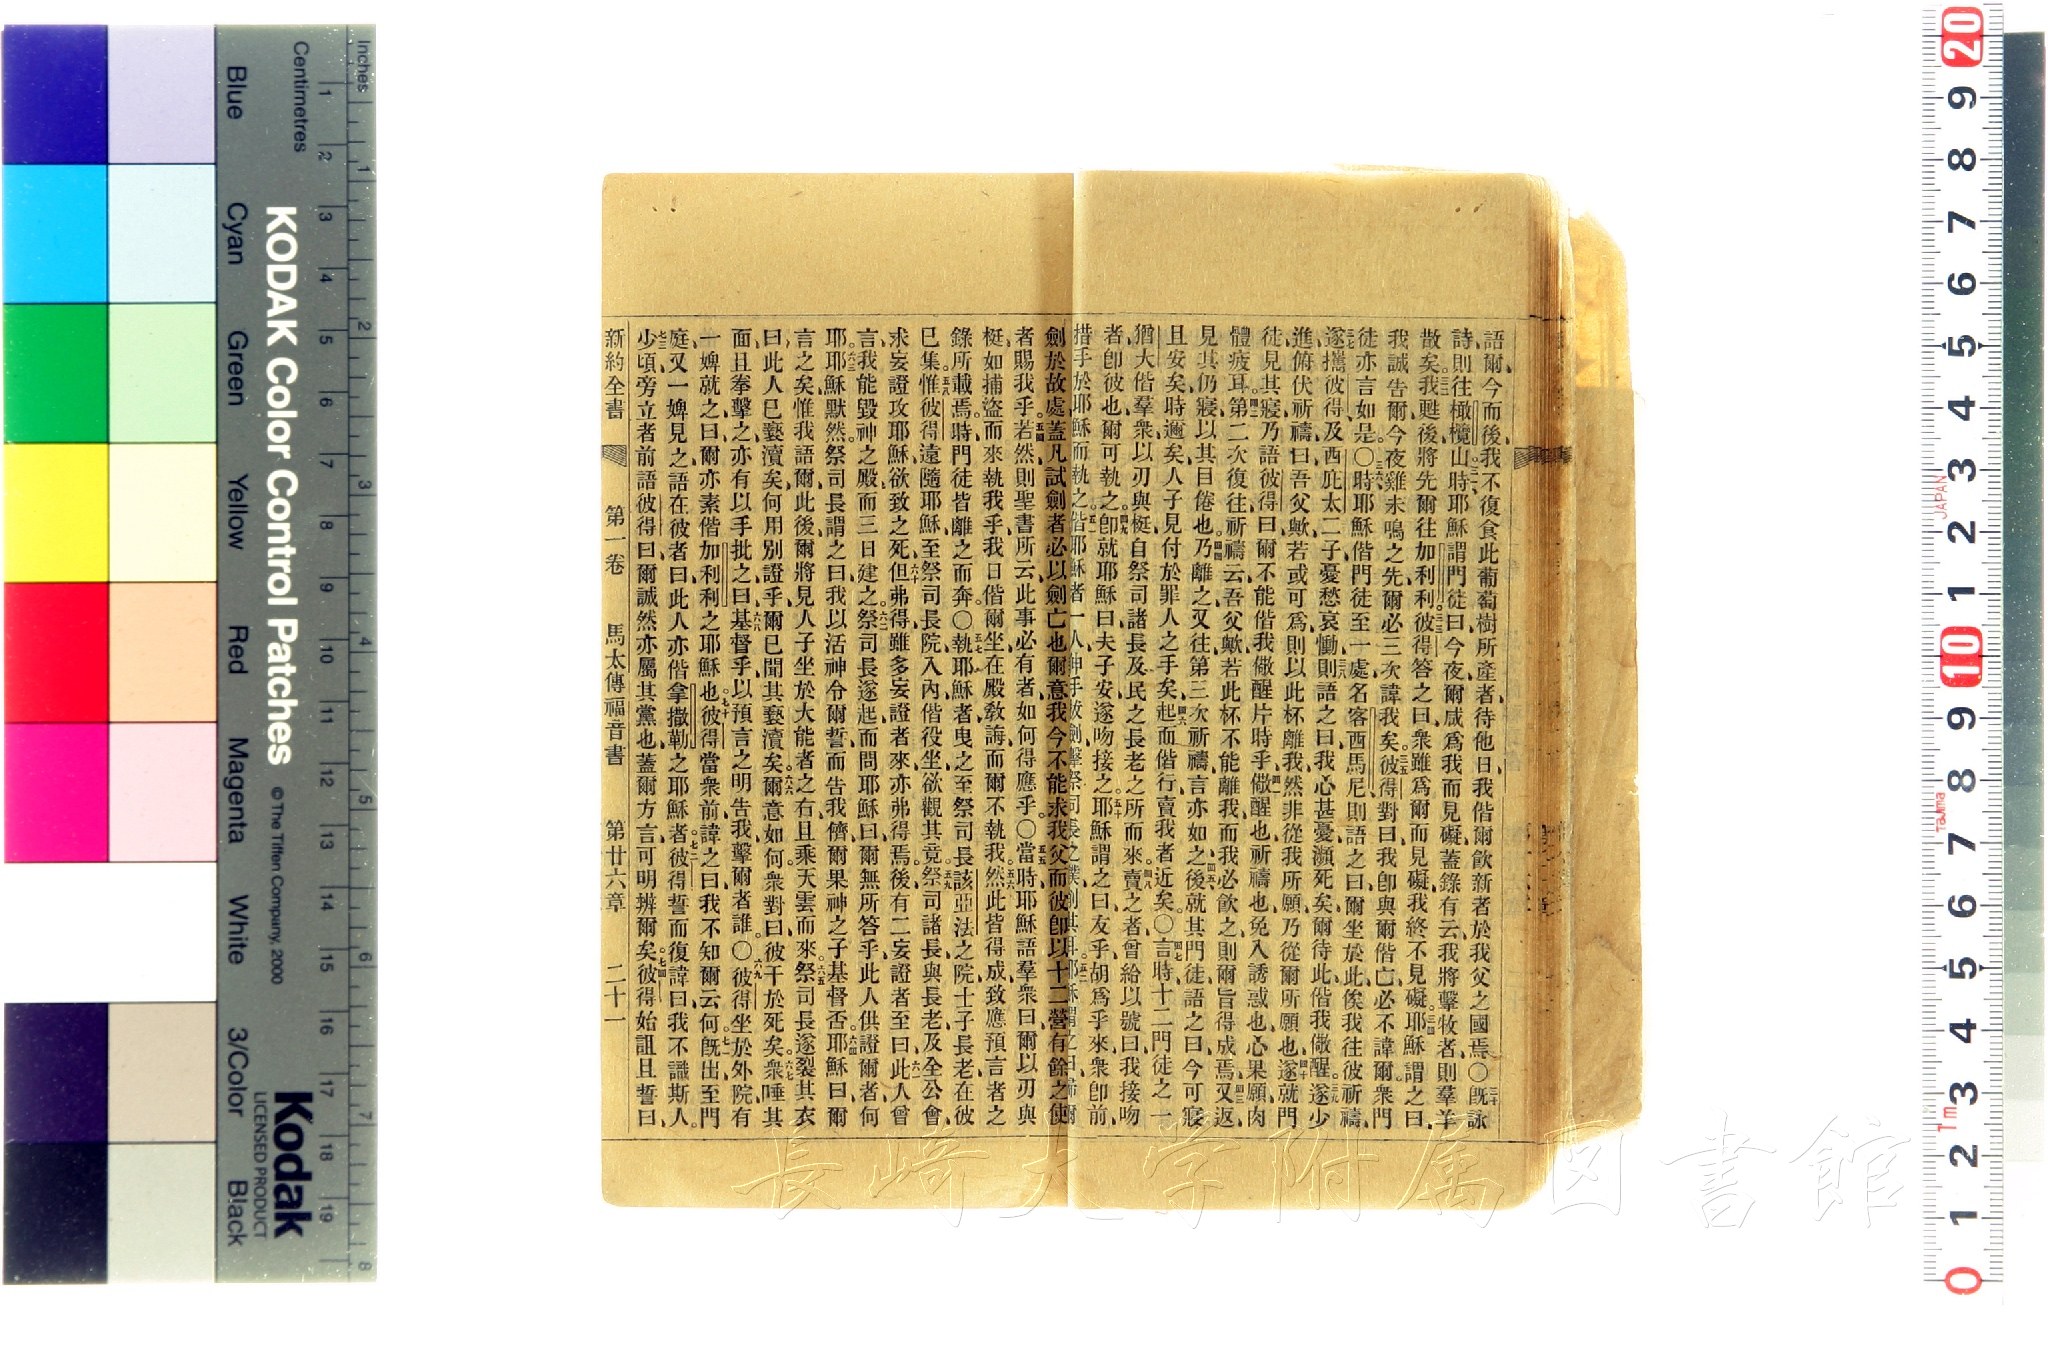 語爾、今而後、我不復食此葡萄樹所產者、待他日我偕爾飮新者於我父之國焉、○三十旣詠
詩、則往橄欖山、三一時耶穌謂門徒曰、今夜爾咸爲我而見礙、蓋錄有云、我將擊牧者、則羣羊
散矣、三二我甦後、將先爾往加利利、三三彼得答之曰、衆雖爲爾而見礙、我終不見礙、三四耶穌謂之曰、
我誠告爾、今夜雞未鳴之先、爾必三次諱我矣、三五彼得對曰、我卽與爾偕亡、必不諱爾、衆門
徒亦言如是。○三六時耶穌偕門徒至一處、名客西馬尼、則語之曰、爾坐於此、俟我往彼祈禱、
三七遂攜彼得、及西庇太二子、憂愁哀慟、三八則語之曰、我心甚憂、瀕死矣、爾待此、偕我儆醒、三九遂少
進、俯伏祈禱曰、吾父歟、若或可爲、則以此杯離我、然非從我所願、乃從爾所願也、四十遂就門
徒、見其寢、乃語彼得曰、爾不能偕我儆醒片時乎、四一儆醒也、祈禱也、免入誘惑也、心果願、肉
體疲耳。四二第二次復往祈禱云、吾父歟、若此杯不能離我、而我必飮之、則爾旨得成焉、四三又返、
見其仍寢、以其目倦也、四四乃離之、又往第三次祈禱、言亦如之、四五後就其門徒語之曰、今可寢
且安矣、時邇矣、人子見付於罪人之手矣、四六起而偕行、賣我者近矣。○四七言時、十二門徒之一
猶大、偕羣衆以刃與梃、自祭司諸長及民之長老之所而來。四八賣之者曾給以號曰、我接吻
者、卽彼也、爾可執之、四九卽就耶穌曰、夫子安、遂吻接之、五十耶穌謂之曰、友乎、胡爲乎來、衆卽前、
措手於耶穌而執之。五一偕耶穌者一人、伸手拔劍、擊祭司長之僕、削其耳、五二耶穌謂之曰、歸爾
劍於故處、蓋凡試劍者、必以劍亡也、爾意我今不能求我父、而彼卽以十二營有餘之使
者賜我乎、五四若然、則聖書所云、此事必有者、如何得應乎。○五五當時耶穌語羣衆曰、爾以刃與
梃、如捕盜而來執我乎、我日偕爾坐在殿敎誨、而爾不執我、五六然此皆得成、致應預言者之
錄所載焉、時門徒皆離之而奔。○五七執耶穌者、曳之至祭司長該亞法之院、士子長老在彼
已集、五八惟彼得遠隨耶穌、至祭司長院、入內偕役坐、欲觀其竟、五九祭司諸長與長老及全公會、
求妄證攻耶穌、欲致之死、六十但弗得、雖多妄證者來、亦弗得焉、後有二妄證者至曰、六一此人曾
言、我能毀神之殿、而三日建之、六二祭司長遂起、而問耶穌曰、爾無所答乎、此人供證爾者何
耶、六三耶穌默然、祭司長謂之曰、我以活神令爾誓、而告我儕、爾果神之子基督否、六四耶穌曰、爾
言之矣、惟我語爾、此後爾將見人子坐於大能者之右、且乘天雲而來、六五祭司長遂裂其衣
曰、此人已褻瀆矣、何用別證乎、爾已聞其褻瀆矣、六六爾意如何、衆對曰、彼干於死矣、六七衆唾其
面、且拳擊之、亦有以手批之曰、六八基督乎、以預言之明告我、擊爾者誰。○六九彼得坐於外院、有
一婢就之曰、爾亦素偕加利利之耶穌也、七十彼得當衆前諱之曰、我不知爾云何、七一旣出至門
庭、又一婢見之、語在彼者曰、此人亦偕拿撒勒之耶穌者、七二彼得誓而復諱曰、我不識斯人、
七三少頃、旁立者前、語彼得曰、爾誠然亦屬其黨也、蓋爾方言可明辨爾矣、七四彼得始詛且誓曰、
新約全書　第一卷　馬太傳福音書　第廿六章　二十一
長崎大学附属図書館
Inches
Centimetres
KODAK Color Control Patches
© The Tiffen Company, 2000
Kodak
LICENSED PRODUCT
Blue
Cyan
Green
Yellow
Red
Magenta
White
3/Color
Black
1 2 3 4 5 6 7 8 9 10 11 12 13 14 15 16 17 18 19
1 2 3 4 5 6 7 8
20 9 8 7 6 5 4 3 2 1 10 9 8 7 6 5 4 3 2 1 0
JAPAN
Tajima
Tm